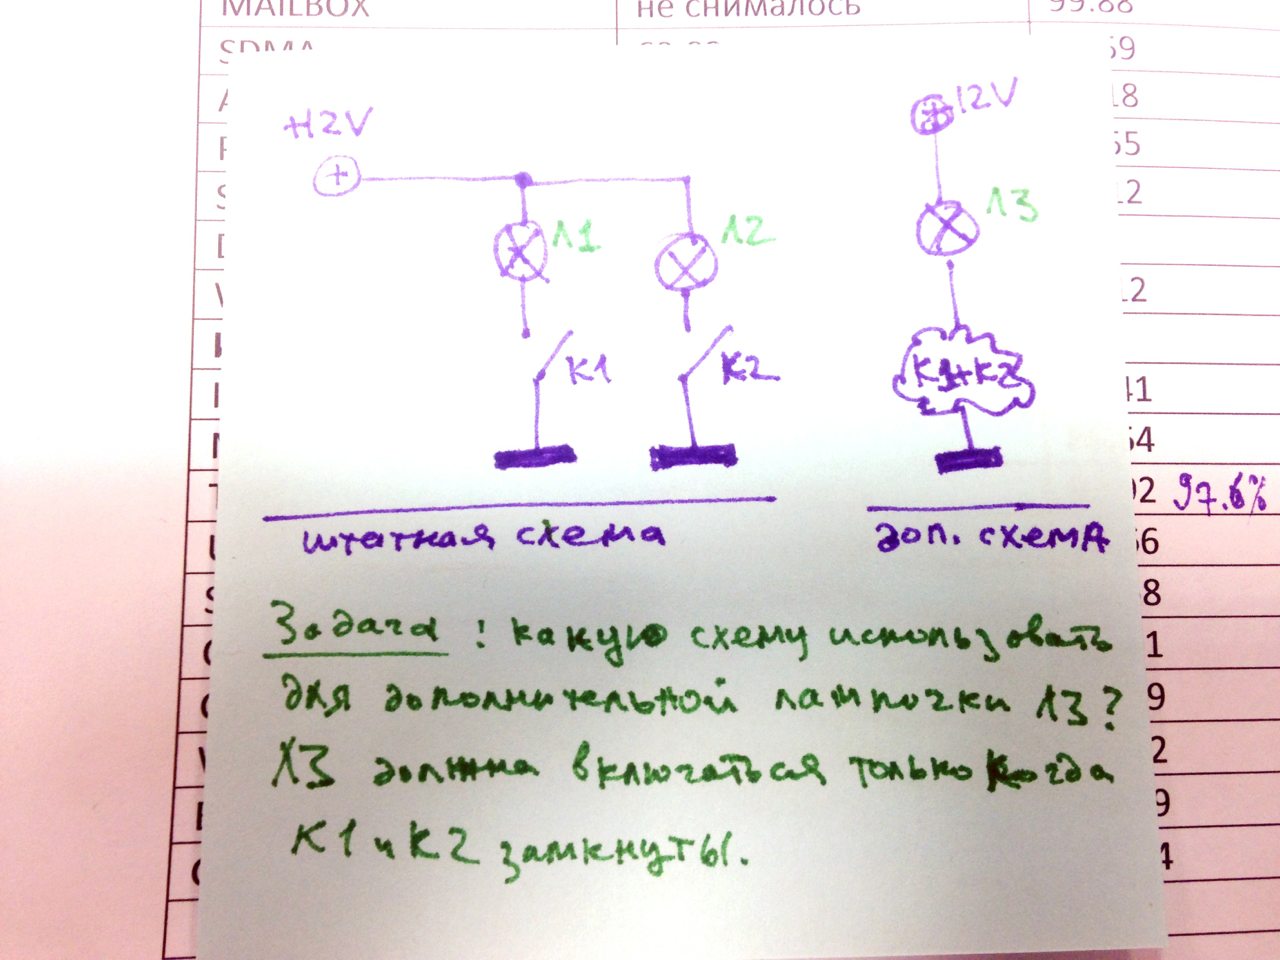 MAILBOX не снималось 99.88
SDMA 59
18
55
12
12
41
54
02 97.6%
56
8
1
9
2
9
4
+12V
+12V
Л1 Л2 Л3
К1 К2 К1+К2
штатная схема доп. схемА
Задача: какую схему использовать
для дополнительной лампочки Л3?
Л3 должна включаться только когда
К1 и К2 замкнуты.